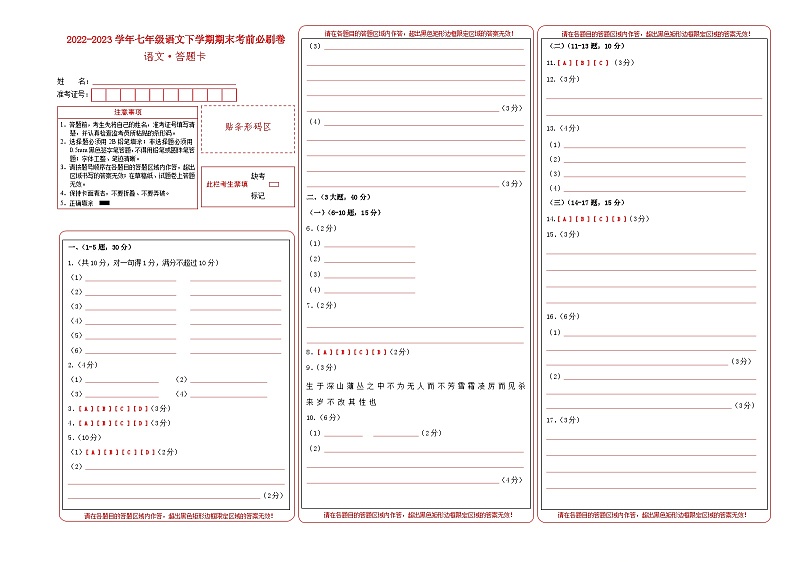 2022-2023 学年七年级语文下学期期末考前必刷卷
语文·答题卡
姓 名：
准考证号：
注意事项
1、答题前，考生先将自己的姓名、准考证号填写清
楚，并认真检查监考员所粘贴的条形码。
2、选择题必须用 2B 铅笔填涂；非选择题必须用
0.5mm 黑色签字笔答题，不得用铅笔或圆珠笔答
题；字体工整、笔迹清晰。
3、请按题号顺序在各题目的答题区域内作答，超出
区域书写的答案无效；在草稿纸、试题卷上答题
无效。
4、保持卡面清洁，不要折叠、不要弄破。
5、正确填涂
贴条形码区
此栏考生禁填
缺考
标记
一、（1-5 题，30 分）
1.（共 10 分，对一句得 1 分，满分不超过 10 分）
（1）
（2）
（3）
（4）
（5）
（6）
2.（4分）
（1） （2）
（3） （4）
3.[A][B][C][D]（3分）
4.[A][B][C][D]（3分）
5.（10分）
（1）[A][B][C][D]（2分）
（2）
（2分）
请在各题目的答题区域内作答，超出黑色矩形边框限定区域的答案无效！
请在各题目的答题区域内作答，超出黑色矩形边框限定区域的答案无效！
（3）
（3分）
（4）
（3分）
二.（3大题，40分）
（一）（6-10题，15分）
6.（2分）
（1）
（2）
（3）
（4）
7.（2分）
8.[A][B][C][D]（2分）
9.（3分）
生 于 深 山 薄 丛 之 中 不 为 无 人 而 不 芳 雪 霜 凌 厉 而 见 杀
来 岁 不 改 其 性 也
10.（6分）
（1） （2分）
（2）
（4分）
请在各题目的答题区域内作答，超出黑色矩形边框限定区域的答案无效！
请在各题目的答题区域内作答，超出黑色矩形边框限定区域的答案无效！
（二）（11-13题，10分）
11.[A][B][C]（3分）
12.（3分）
13.（4分）
（1）
（2）
（3）
（4）
（三）（14-17题，15分）
14.[A][B][C][D]（3分）
15.（3分）
16.（6分）
（1）
（3分）
（2）
（3分）
17.（3分）
请在各题目的答题区域内作答，超出黑色矩形边框限定区域的答案无效！